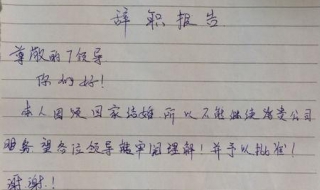 辞职报告
尊敬的了领导
你们好!
本人因须回家结婚所以不能继续为贵公司
服务望各位领导能审阅理解!并予以批准!
谢谢!